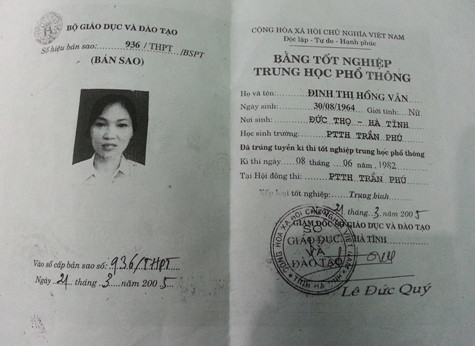 BỘ GIÁO DỤC VÀ ĐÀO TẠO
Số hiệu bản sao: 936/THPT/BSPT
(BẢN SAO)
Vào sổ cấp bản sao số: 936/THPT
Ngày 21 tháng 3 năm 2005
CỘNG HÒA XÃ HỘI CHỦ NGHĨA VIỆT NAM
Độc lập - Tự do - Hạnh phúc
BẰNG TỐT NGHIỆP
TRUNG HỌC PHỔ THÔNG
Họ và tên: ĐINH THỊ HỒNG VÂN
Ngày sinh: 30/08/1964 Giới tính: Nữ
Nơi sinh ĐỨC THỌ - HÀ TĨNH
Học sinh trường: PTTH TRẦN PHÚ
Đã trúng tuyển kì thi tốt nghiệp trung học phổ thông
Kì thi ngày 08 tháng 06 năm 1982
Tại Hội đồng thi: PTTH TRẦN PHÚ
Xếp loại tốt nghiệp: Trung bình
21 tháng 3 năm 2005
GIÁM ĐỐC SỞ GIÁO DỤC VÀ ĐÀO TẠO
HÀ TĨNH
SỞ
GIÁO DỤC
VÀ
ĐÀO TẠO
Lê Đức Quý